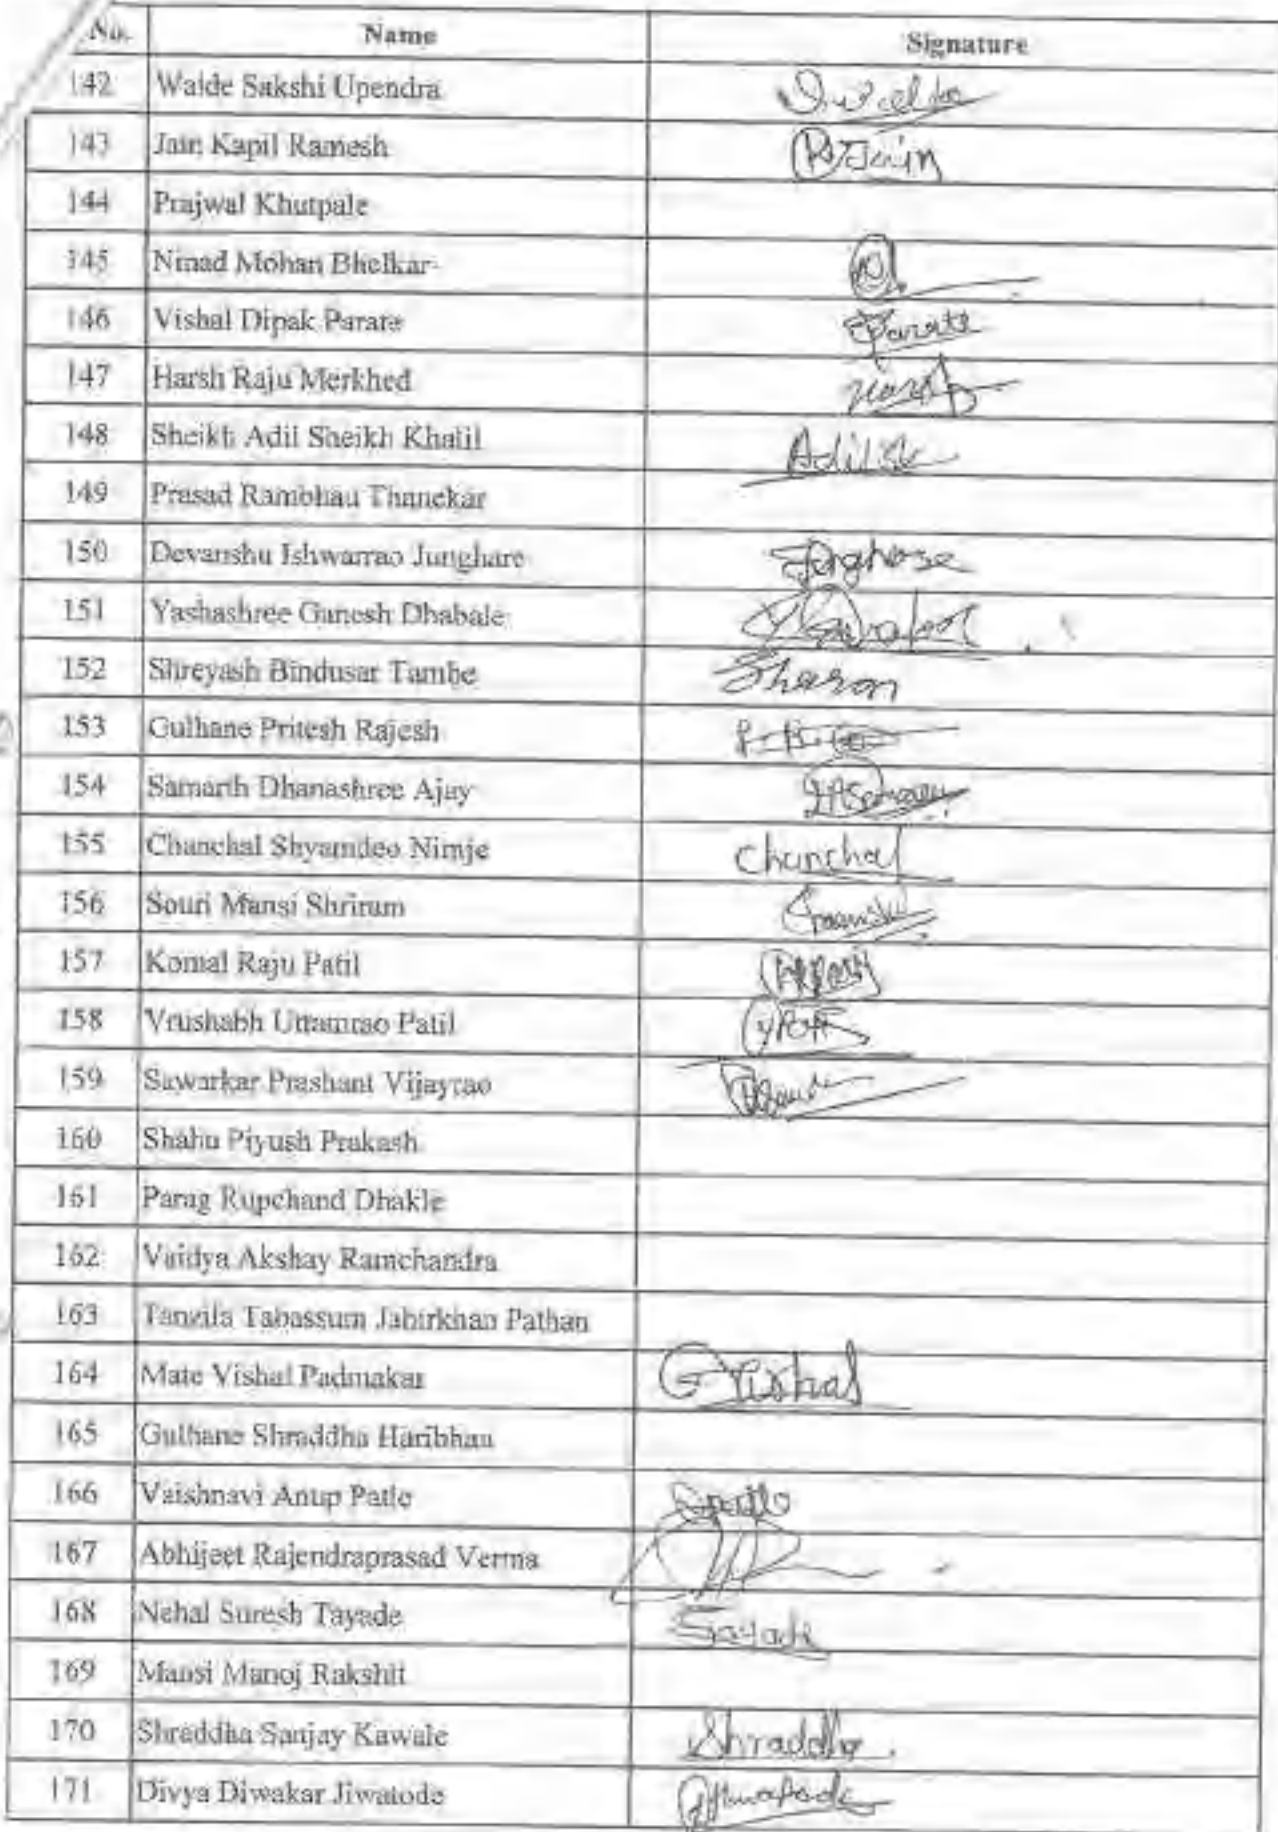 No. Name Signature
142 Walde Sakshi Upendra
143 Jain Kapil Ramesh RJain
144 Prajwal Khutpale
145 Ninad Mohan Bhelkar
146 Vishal Dipak Parate Parate
147 Harsh Raju Merkhed Harsh
148 Sheikh Adil Sheikh Khalil
149 Prasad Rambhau Thanekar
150 Devanshu Ishwarrao Junghare
151 Yashashree Ganesh Dhabale
152 Shreyash Bindusar Tambe Sharon
153 Gulhane Pritesh Rajesh
154 Samarth Dhanashree Ajay
155 Chanchal Shyamdeo Nimje Chanchal
156 Souri Mansi Shriram
157 Komal Raju Patil
158 Vrushabh Uttamrao Patil
159 Sawarkar Prashant Vijayrao
160 Shahu Piyush Prakash
161 Parag Rupchand Dhakle
162 Vaidya Akshay Ramchandra
163 Tanzila Tabassum Jabirkhan Pathan
164 Mate Vishal Padmakar Vishal
165 Gulhane Shraddha Haribhau
166 Vaishnavi Anup Patle
167 Abhijeet Rajendraprasad Verma
168 Nehal Suresh Tayade Tayade
169 Mansi Manoj Rakshit
170 Shraddha Sanjay Kawale Shraddha
171 Divya Diwakar Jiwatode